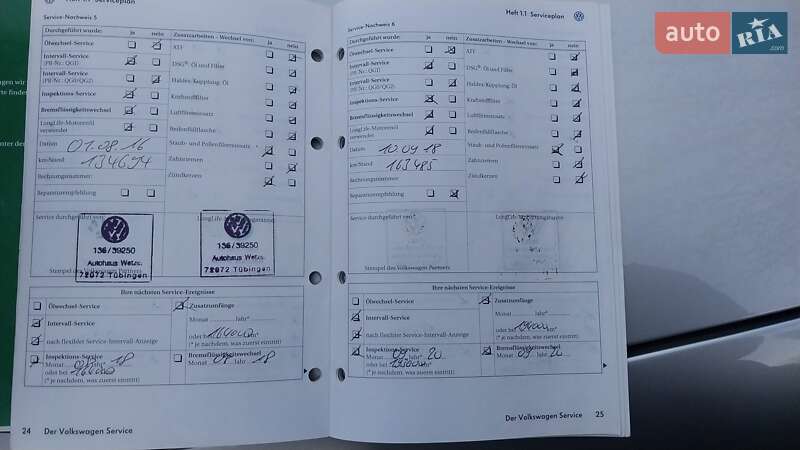 Heft 1.1 · Serviceplan
Service-Nachweis 5
Durchgeführt wurde: ja nein
Ölwechsel-Service
Intervall-Service
(PR-Nr.: QG1)
Intervall-Service
(PR-Nr.: QG0/QG2)
Inspektions-Service
Bremsflüssigkeitswechsel
LongLife-Motorenöl
verwendet
Datum: 01.08.16
km/Stand: 134694
Rechnungsnummer:
Reparaturempfehlung
Zusatzarbeiten - Wechsel von: ja nein
ATF
DSG®: Öl und Filter
Haldex/Kupplung: Öl
Kraftstofffilter
Luftfiltereinsatz
Reifenfüllflasche
Staub- und Pollenfiltereinsatz
Zahnriemen
Zündkerzen
Service durchgeführt von:
LongLife-Mobilitätsgarantie
136/39250
Autohaus Wetz.
72072 Tübingen
136/39250
Autohaus Wetz.
72072 Tübingen
Stempel des Volkswagen Partners
Ihre nächsten Service-Ereignisse
Ölwechsel-Service
Intervall-Service
nach flexibler Service-Intervall-Anzeige
Inspektions-Service
Monat Jahr 18
oder bei 164000
(* je nachdem, was zuerst eintritt)
Zusatzumfänge
Monat Jahr*
oder bei 164000 km*
(* je nachdem, was zuerst eintritt)
Bremsflüssigkeitswechsel
Monat 08 Jahr 18
24 Der Volkswagen Service
Heft 1.1 · Serviceplan
Service-Nachweis 6
Durchgeführt wurde: ja nein
Ölwechsel-Service
Intervall-Service
(PR-Nr.: QG1)
Intervall-Service
(PR-Nr.: QG0/QG2)
Inspektions-Service
Bremsflüssigkeitswechsel
LongLife-Motorenöl
verwendet
Datum: 10.09.18
km/Stand: 163485
Rechnungsnummer:
Reparaturempfehlung
Zusatzarbeiten - Wechsel von: ja nein
ATF
DSG®: Öl und Filter
Haldex/Kupplung: Öl
Kraftstofffilter
Luftfiltereinsatz
Reifenfüllflasche
Staub- und Pollenfiltereinsatz
Zahnriemen
Zündkerzen
Service durchgeführt von:
LongLife-Mobilitätsgarantie
Stempel des Volkswagen Partners
Ihre nächsten Service-Ereignisse
Ölwechsel-Service
Intervall-Service
nach flexibler Service-Intervall-Anzeige
Inspektions-Service
Monat 09 Jahr 20
oder bei
(* je nachdem, was zuerst eintritt)
Zusatzumfänge
Monat Jahr*
oder bei
(* je nachdem, was zuerst eintritt)
Bremsflüssigkeitswechsel
Monat 09 Jahr 20
Der Volkswagen Service 25
auto RIA
.com